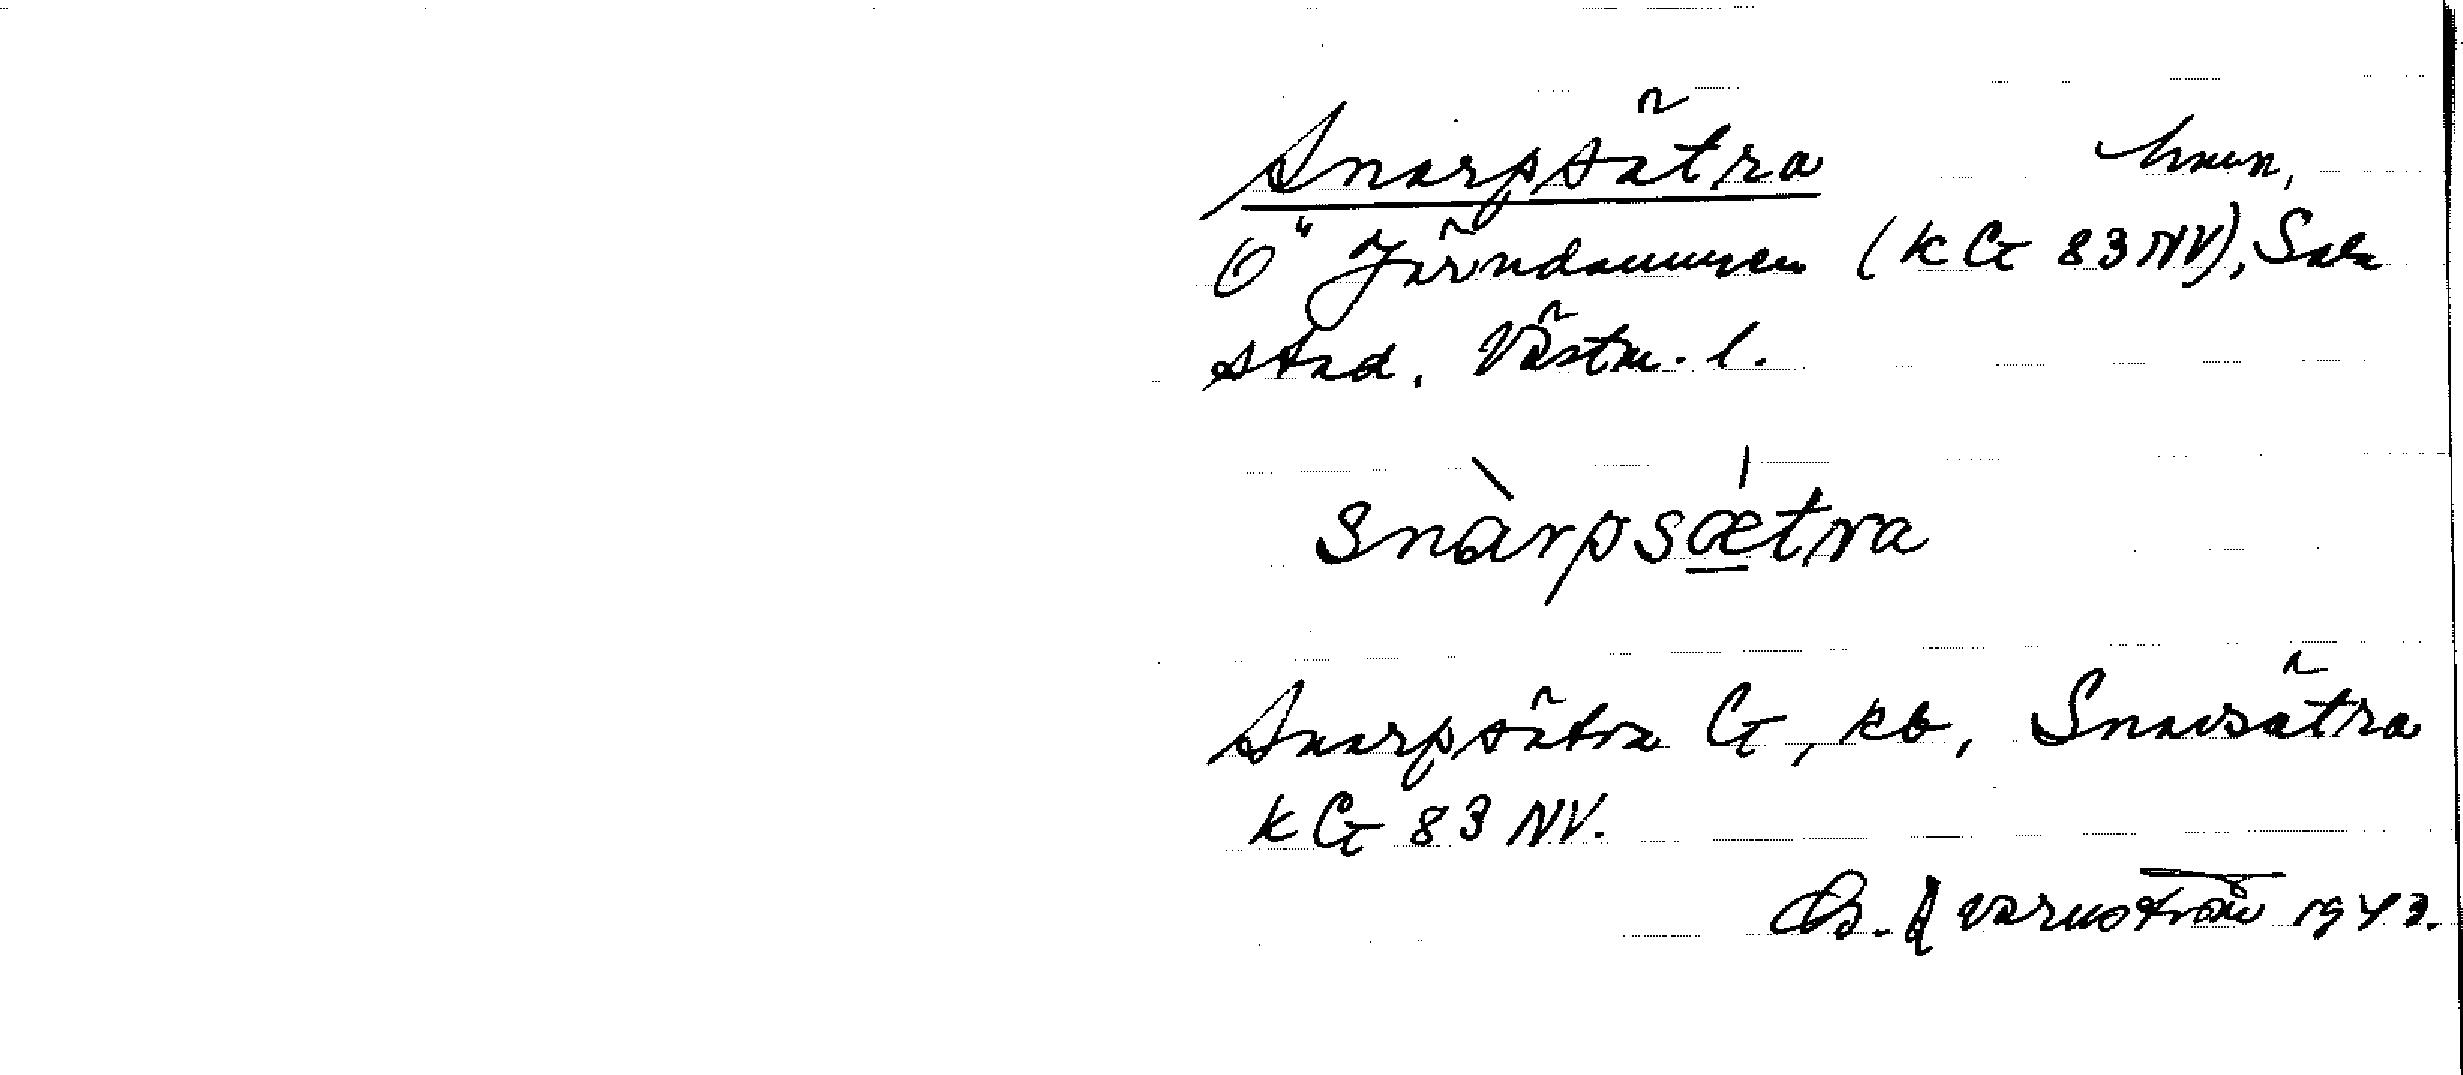 Snarpsätra hmn,
Ö" Järndammen (KG 83 NV), Sala
stad. Västm. l.
snàrpsǽtra
Snarpsätra G, kb, Snarsätra
KG 83 NV.
Qvarnström 1943.